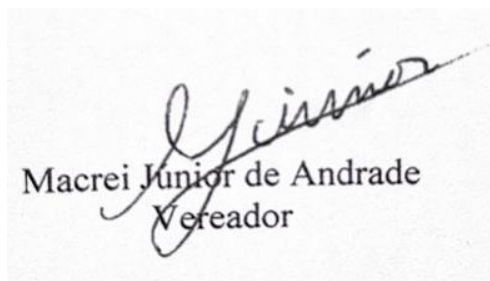 Júnior
Macrei Júnior de Andrade
Vereador